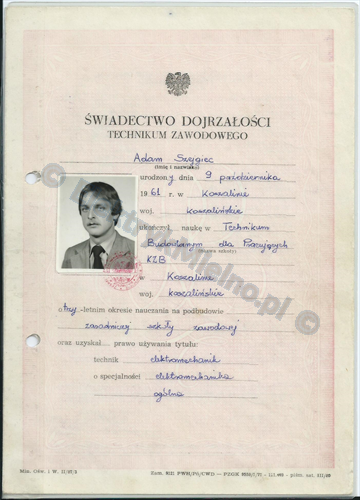 ŚWIADECTWO DOJRZAŁOŚCI
TECHNIKUM ZAWODOWEGO
Adam Szygiec
(imię i nazwisko)
urodzony dnia 9 października
1961 r. w Koszalinie
woj. koszalińskie
ukończył naukę w Technikum
Budowlanym dla Pracujących
(nazwa szkoły)
KZB
w Koszalinie
woj. koszalińskie
o trzy-letnim okresie nauczania na podbudowie
zasadniczej szkoły zawodowej
oraz uzyskał prawo używania tytułu:
technik elektromechanik
o specjalności elektromechanika
ogólna
Min. Ośw. i W. II/67/5